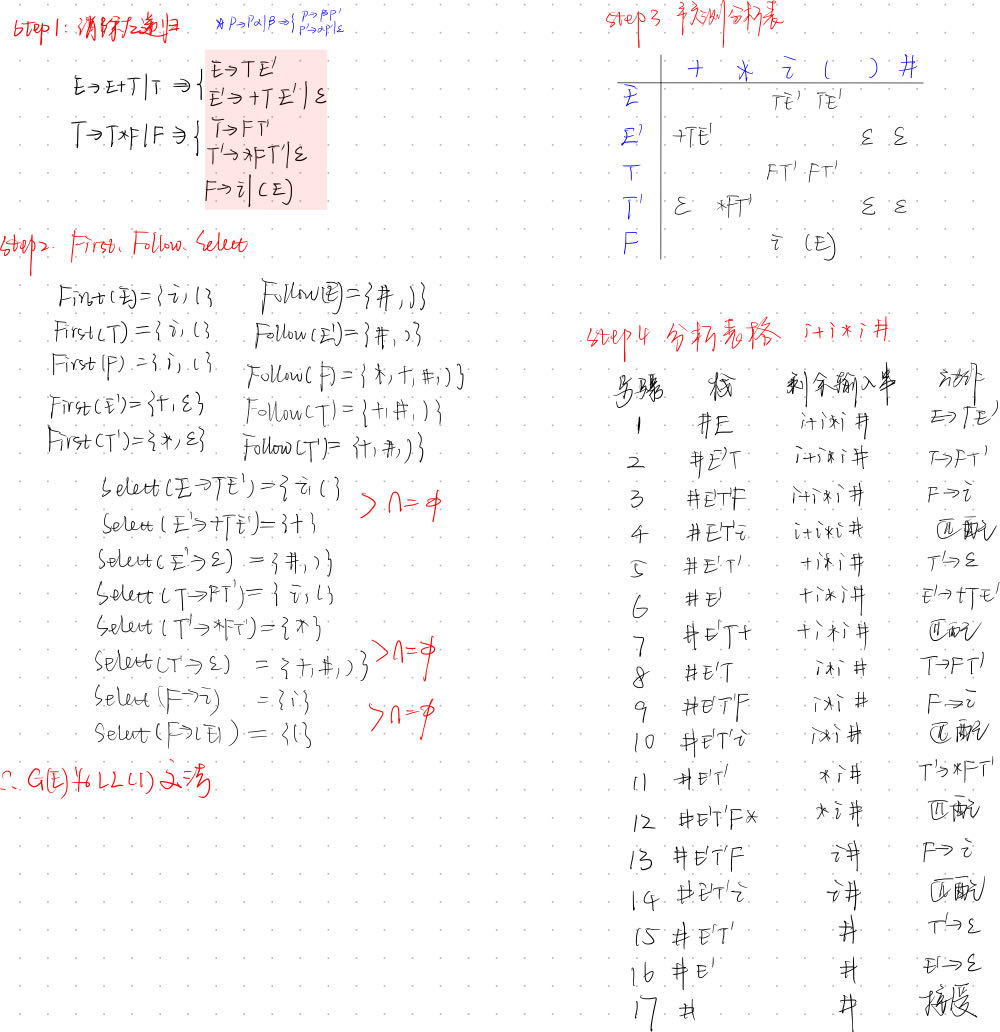 Step1: 消除左递归
※ P→Pα|β⇒{ P→βP'
P'→αP'|ε
E→E+T|T ⇒{ E→TE'
E'→+TE'|ε
T→T*F|F ⇒{ T→FT'
T'→*FT'|ε
F→i|(E)
Step2. First、Follow、Select
First(E)={i,(} Follow(E)={#,)}
First(T)={i,(} Follow(E')={#,)}
First(F)={i,(} Follow(F)={*,+,#,)}
First(E')={+,ε} Follow(T)={+,#,)}
First(T')={*,ε} Follow(T')={+,#,)}
Select(E→TE')={i,(}
Select(E'→+TE')={+}
>∩=φ
Select(E'→ε)={#,)}
Select(T→FT')={i,(}
Select(T'→*FT')={*}
Select(T'→ε)={+,#,)}
>∩=φ
Select(F→i)={i}
Select(F→(E))={(}
>∩=φ
∴G(E)为LL(1)文法
Step3 预测分析表
+ * i ( ) #
E TE' TE'
E' +TE' ε ε
T FT' FT'
T' ε *FT' ε ε
F i (E)
Step4 分析表格 i+i*i#
步骤 栈 剩余输入串 动作
1 #E i+i*i# E→TE'
2 #E'T i+i*i# T→FT'
3 #E'T'F i+i*i# F→i
4 #E'T'i i+i*i# 匹配
5 #E'T' +i*i# T'→ε
6 #E' +i*i# E'→+TE'
7 #E'T+ +i*i# 匹配
8 #E'T i*i# T→FT'
9 #E'T'F i*i# F→i
10 #E'T'i i*i# 匹配
11 #E'T' *i# T'→*FT'
12 #E'T'F* *i# 匹配
13 #E'T'F i# F→i
14 #E'T'i i# 匹配
15 #E'T' # T'→ε
16 #E' # E'→ε
17 # # 接受